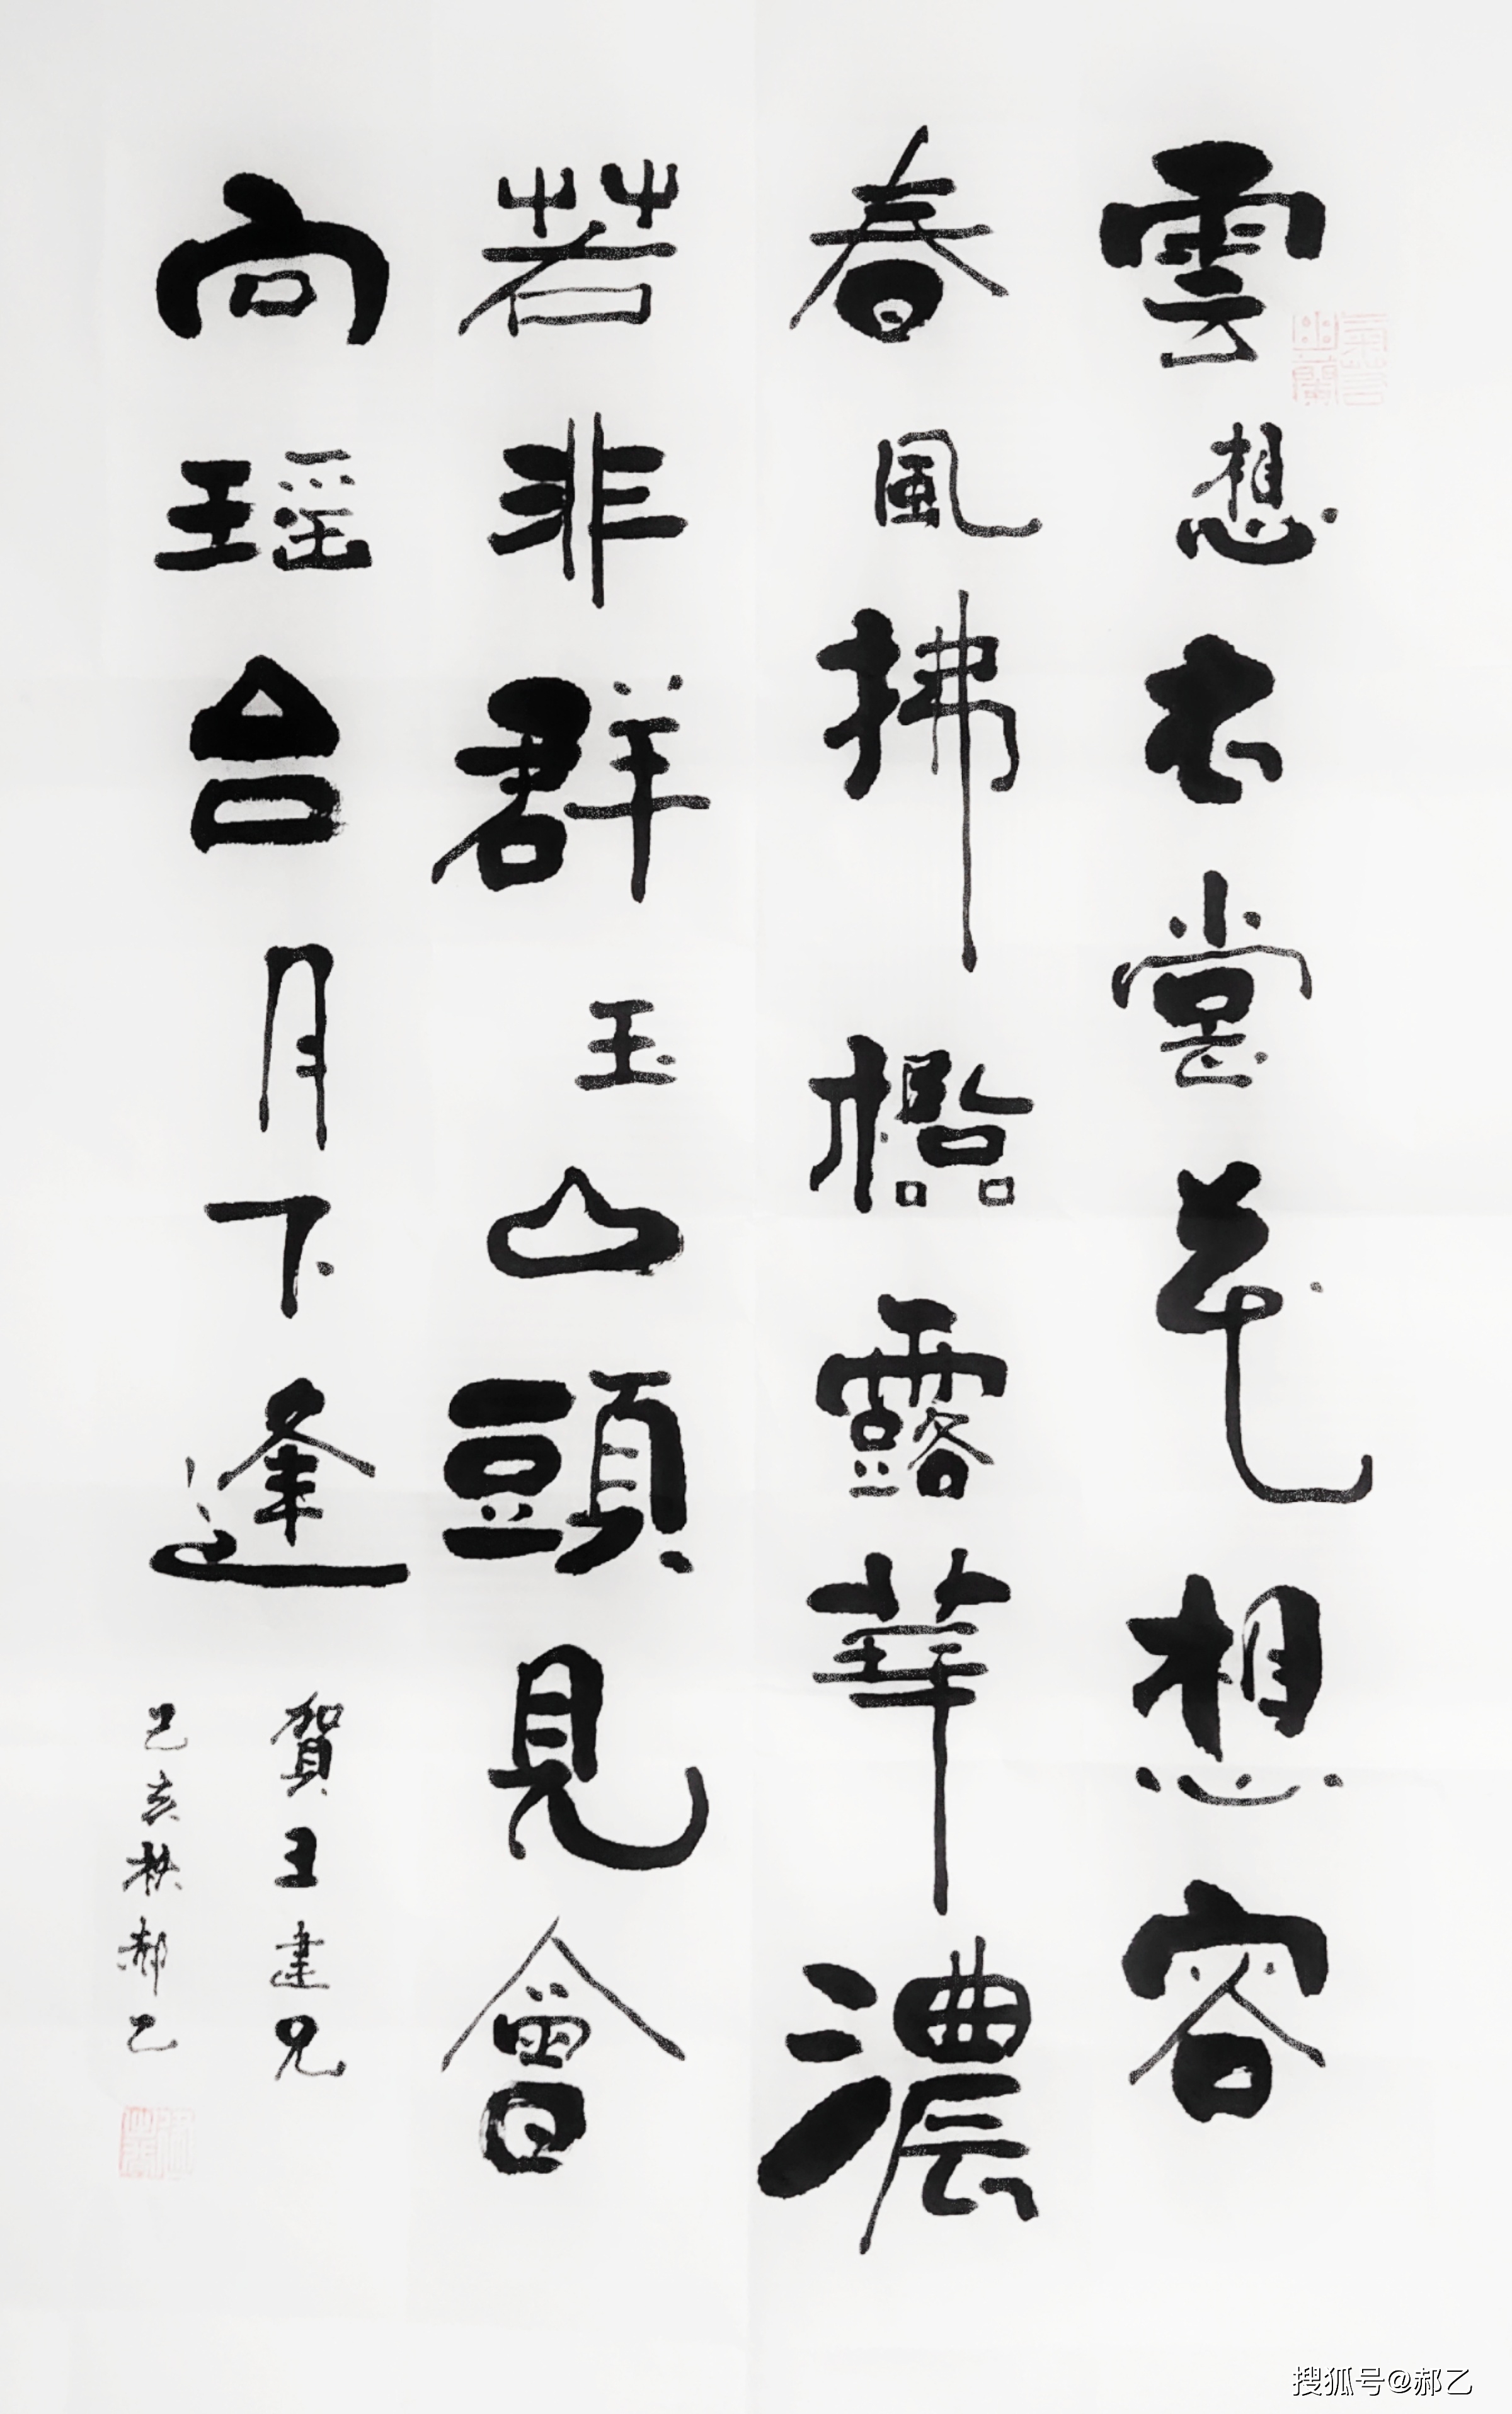 雲想衣裳花想容
春風拂檻露華濃
若非群玉山頭見會
向瑶台月下逢
賀王建兄
己亥秋郝乙
搜狐号@郝乙